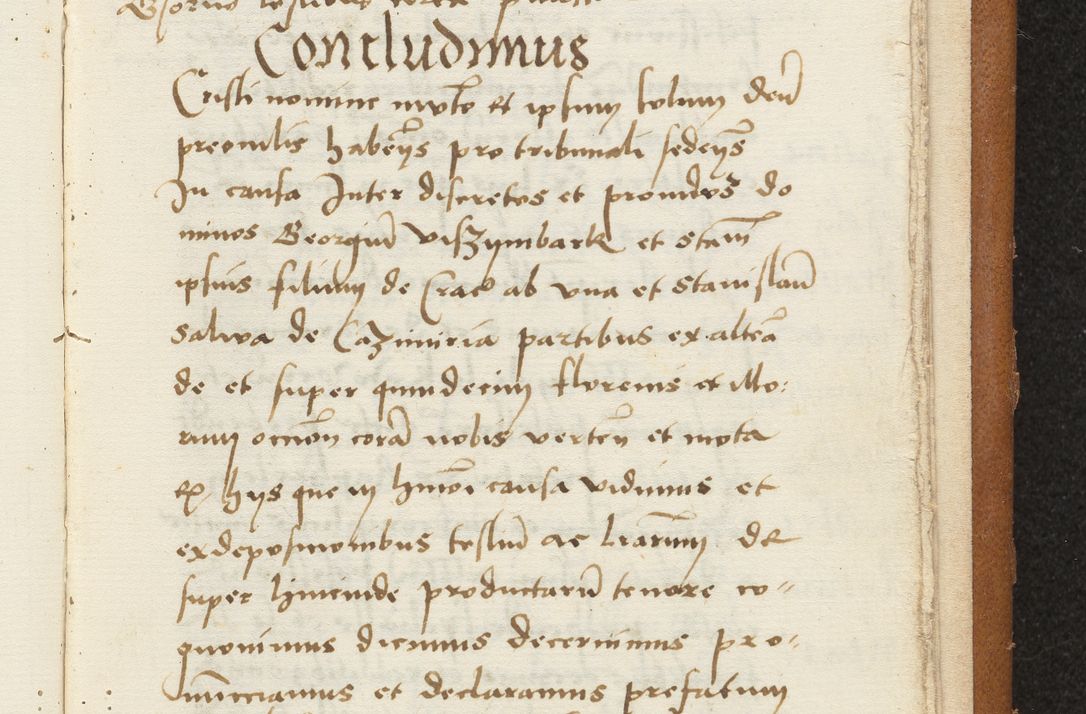 testibus
Concludimus
Cristi nomine inuoto et ipsum solum deū
preoculis habeñs pro tribunali sedeñs
In causa Inter discretos et prouidos do
minos Georgiū viszymbark et Stanī
ipsius filium de Crac̄ ab vna et Stanislaū
Saliva de Cazimiria partibus ex altera
de et super quindecim florenis et illo:
rum occōn corā nobis verteñ et mota
ex hys que in hmōi causa vidimus et
ex deposicionibus testiū ac lr̄arum de
super hincinde productarū tenore co"
gnouimus dicimus decernimus pro"
nūcciamus et declaramus prefatum